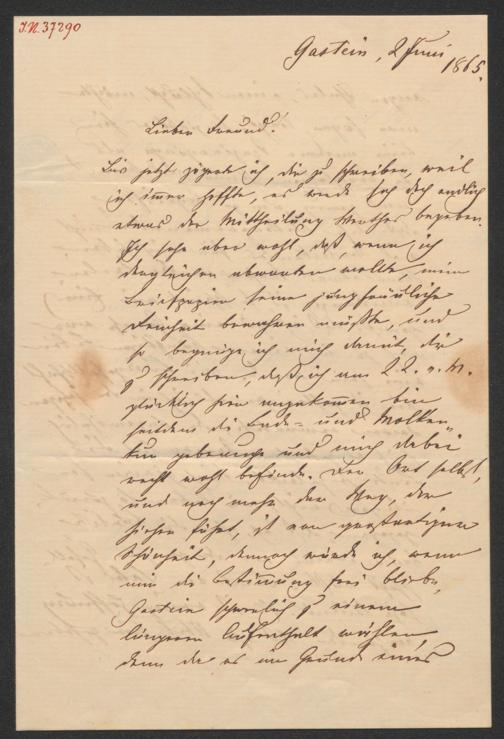 I.N. 37290
Gastein, 2 Juni
1865.
Lieber Freund!
Bis jetzt zögerte ich, dir zu schreiben, weil
ich immer hoffte, es werde sich doch endlich
etwas der Mittheilung Werthes begeben.
Ich sehe aber wohl, daß, wenn ich
dergleichen abwarten wollte, mein
Briefpapier seine jungfräuliche
Reinheit bewahren müßte, und
so begnüge ich mich damit, dir
z schreiben, daß ich am 22. v. M.
glücklich hier angekommen bin
seitdem die Bade- und Molken-
kur gebrauche und mich dabei
recht wohl befinde. Der Ort selbst,
und noch mehr der Weg, der
hieher führt, ist von großartiger
Schönheit, dennoch würde ich, wenn
mir die Bestimmung frei bliebe,
Gastein schwerlich z einem
längeren Aufenthalt wählen,
denn da es im Grunde eines